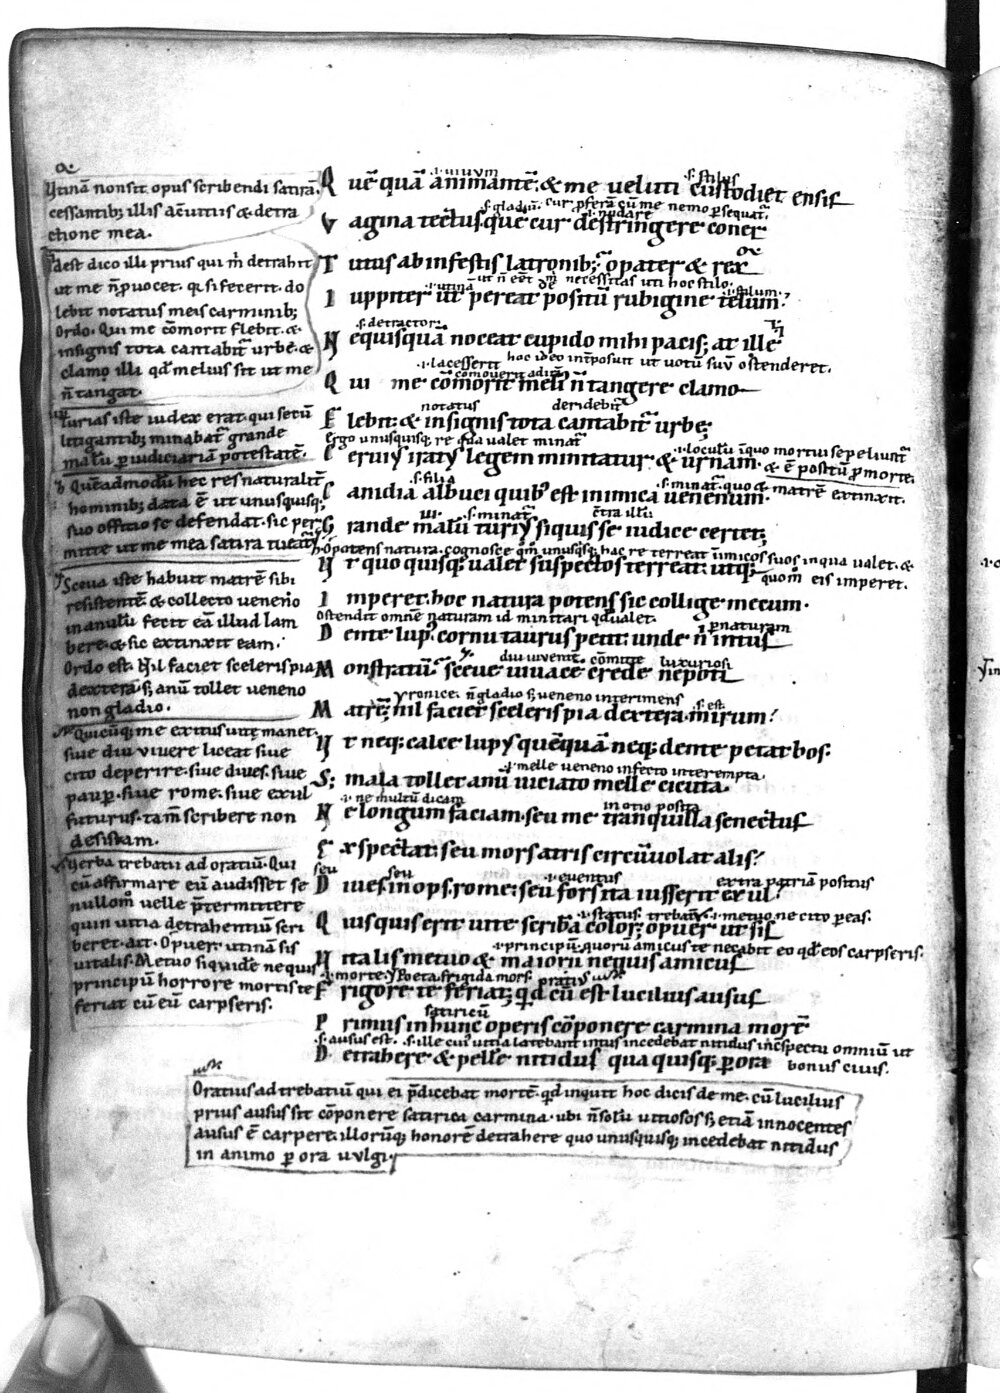 ɑ·
Vtinā nonsit opus scribendi satirā·
cessantib; illis ac̄uitiis & detra
ctione mea·
Idest dico illi prius qui m̄ detrahit
ut me n̄puocet· qi si fecerit· do
lebit notatus meis carminib;
Ordo· Qui me cōmorit flebit· &
insignis tota cantabit̄ urbe· &
clamo illi qd̄ melius sit ut me
n̄ tangat·
Turius iste iudex erat· qui setū
litigantib; minabat̄ grande
malū p iudiciariā potestatē·
Quēadmodū hec res naturalit̄
hominib; data ē ut unusquisq;
suo offitio se defendat· sic per
mitte ut me mea satira tueat̄
Sceua iste habuit matrē sibi
resistentē· & collecto ueneno
in anulū fecit eā illud lam
bere· & sic extinxit eam·
Ordo est· Nil faciet sceleris pia
dextera· s; anū tollet ueneno
non gladio·
Quicūq; me exitus uitę manet·
siue diu uiuere liceat siue
cito deperire· siue diues· siue
paup· siue rome· siue exul
futurus· tam̄ scribere non
desistam·
Verba trebatii ad oratiū· Qui
cū affirmare eū audisset se
nullom̄ uelle p̄termittere
quin uitia detrahentiū scri
beret· ait· O puer· utinā sis
uitalis· Metuo siquidē nequis
principū horrore mortis te
feriat cū eū carpseris·
·i· uiuum ·s· stilus
Q uē quā animantē· & me ueluti custodiet ensis
·s· gladiū· cur pferā cū me nemo psequat̄·
·i· nudare
V agina tectus· quē cur destringere coner
T utus ab infestis latronib;· o pater & rex
·i· utinā ut n̄ eēt m̄ necessitas uti hoc stilo· ·i· stilum·
I uppiter ut pereat positū rubigine telum?
·s· detractor·
N equisquā noceat cupido mihi pacis; at ille
·i· lacesserit hoc ideo int̄posuit ut uotū suū ostenderet·
cōmouerit ad irā
Q ui me cōmorit meli· n̄ tangere clamo
notatus deridebit̄
F lebit· & insignis tota cantabit̄ urbe;
Ergo unusquisq; re qua ualet minat̄ ·i· loculū inquo mortui sepeliunt̄
C eruiꝰ iratꝰ legem minitatur & urnam· & ē positū p morte·
·s· filia ·s· minat̄· quo & matrē extinxit·
C anidia albuci quibꝰ est inimica uenenum·
·s· minat̄ cētra illū·
G rande malū turiꝰ siquis se iudice certet;
O potens natura· cognosce qm̄ unusq̄sq; hac re terreat inimicos suos in qua ualet· &
V t quo quisq; ualet suspectos terreat· utq; quom̄ eis imperet·
I mperet· hoc natura potens sic collige mecum·
ostendit omnē naturam id minitari qd ualet·
D ente lupꝰ cornu taurus petit· unde n̄ intus p naturam
diu uiuentē· cōmitte luxurioso
M onstratū· sceue uiuace crede nepoti
yronice· n̄ gladio s; ueneno interimens ·s· est·
M atrē; nil faciet sceleris pia dextera· mirum?
V t neq; calce lupꝰ quēquā neq; dente petat bos·
·i· melle ueneno infecto interempta·
S; mala tollet anū uiciato melle cicuta·
·i· ne multū dicam in otio posita
N e longum faciam· seu me tranquilla senectus
E xspectat· seu mors atris circūuolat alis?
seu seu ·i· euentus extra patriā positus
D iues· inops· rome· seu fors ita iusserit exul·
·i· status· trebati· ·i· metuo ne cito pereas·
Q uisquis erit uite scribā color; o puer ut sis
·i· principū· quorū amicus te necabit eo qd eos carpseris·
V italis metuo & maiorū nequis amicus
·i· morte· ꝉ Poeta frigida mors· oratius
F rigore te feriat; quid cū est lucilius ausus
satiricū
P rimus in hunc operis cōponere carmina morē
·s· ausus est· ·s· ille cuius uitia latebant intus incedebat nitidus in cspectu omniū ut
D etrahere & pelle nitidus qua quisq; p ora bonus ciuis·
Oratius ad trebatiū qui ei p̄dicebat mortē· quid inquit hoc dicis de me· cū lucilius
prius ausus sit cōponere satirica carmina· ubi n̄ solū uitiosos s; etiā innocentes
ausus ē carpere· illorūq; honorē detrahere quo unusquisq; incedebat nitidus
in animo p ora uulgi·